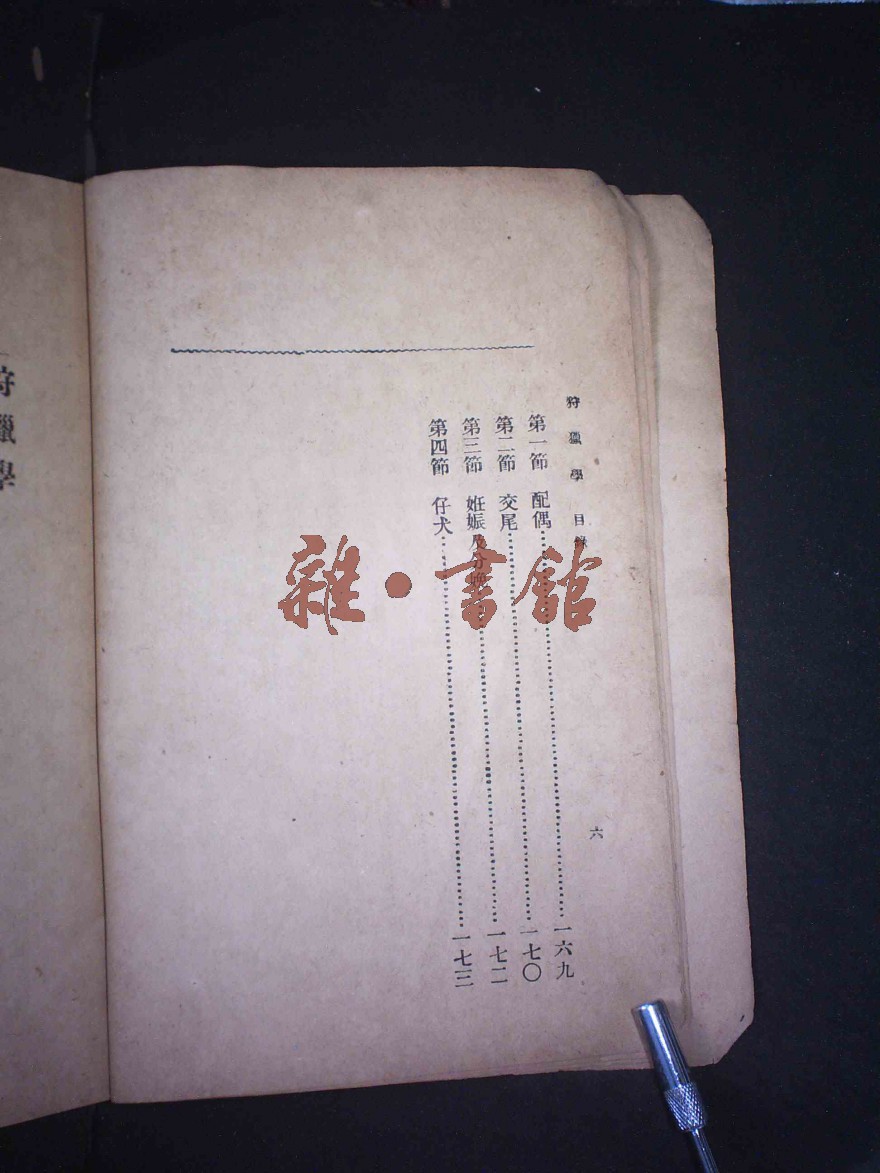 狩獵學 目錄
六
第一節 配偶……一六九
第二節 交尾……一七〇
第三節 妊娠及分娩……一七二
第四節 仔犬……一七三
狩獵學
雜·書館